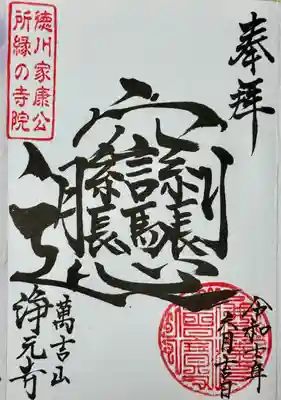 奉拝
令和七年
吉日
𰻞
萬吉山
浄元寺
徳川家康公
所縁の寺院